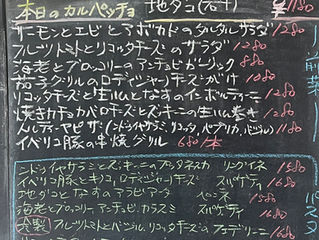 本日のカルパッチョ 地ダコ ¥1180
サーモンとエビとアボカドのタルタルサラダ 1280
フルーツトマトとリコッタチーズのサラダ 1280
海老とブロッコリーのアンチョビガーリック 880
茄子グリルのロディジャーノチーズがけ 1280
リコッタチーズと生ハムとなすのインボルティーニ 1280
焼きカチョカバロチーズとズッキーニの生ハム巻き 1280
メルティーヤピザ (ンドゥイヤサラミ、リコッタ、パプリカ、バジル) 1180
イベリコ豚の串焼グリル 680/本
前菜
ンドゥイヤサラミとズッキーニのプッタネスカ リングイネ 1580
イベリコ豚とキノコ、ロディジャーノチーズ スパゲティ 1680
地ダコとなすのアラビアータ ペンネ 1580
海老とブロッコリー アンチョビ カラスミ スパゲティ 1680
フルーツトマトとバジル、リコッタチーズの フェデリーニ 1680
パスタ